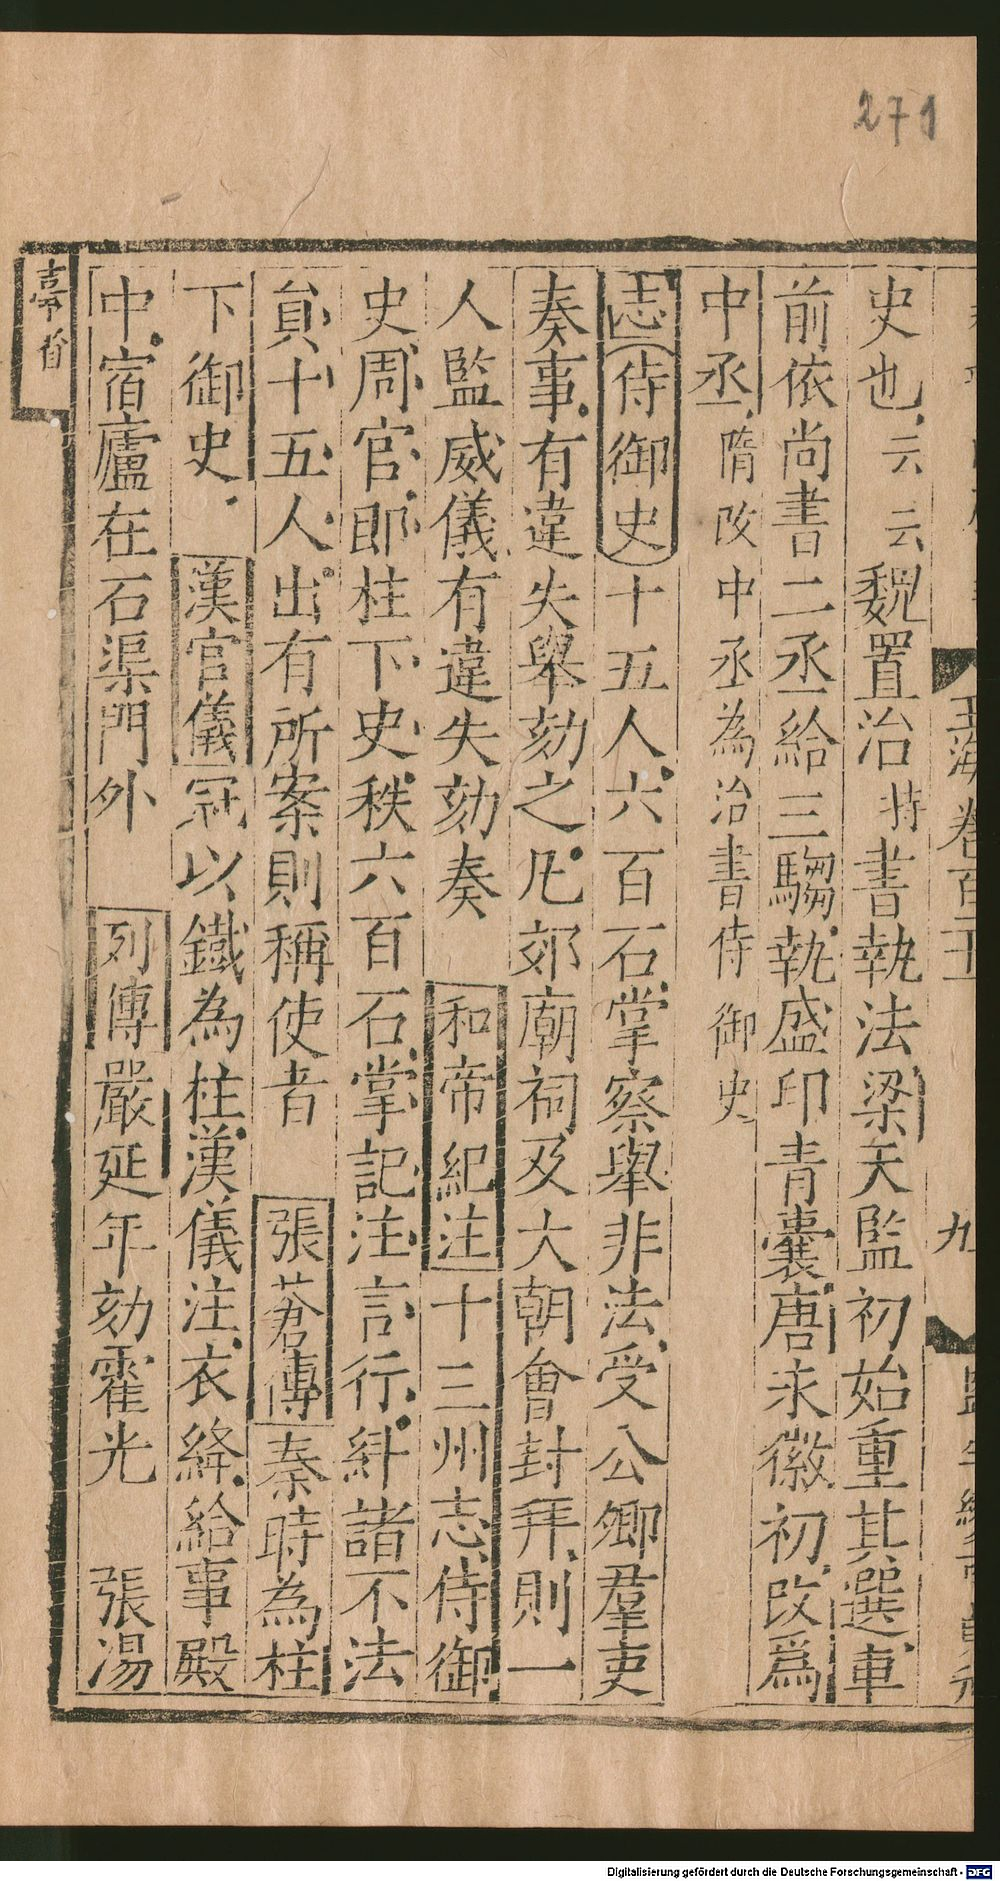 271
史也云云魏置治持書執法梁天監初始重其選車
前依尚書二丞給三騶執盛印青囊唐永徽初改爲
中丞隋改中丞為治書侍御史
志侍御史十五人六百石掌察舉非法受公卿羣吏
奏事有違失舉劾之凡郊廟祠及大朝會封拜則一
人監威儀有違失劾奏 和帝紀注十三州志侍御
史周官即柱下史秩六百石掌記注言行糾諸不法
貟十五人出有所案則稱使者 張蒼傳秦時為柱
下御史 漢官儀冠以鐵為柱漢儀注衣絳給事殿
中宿廬在石渠門外 列傳嚴延年劾霍光 張湯
臺省
玉海卷百二十
九
Digitalisierung gefördert durch die Deutsche Forschungsgemeinschaft - DFG